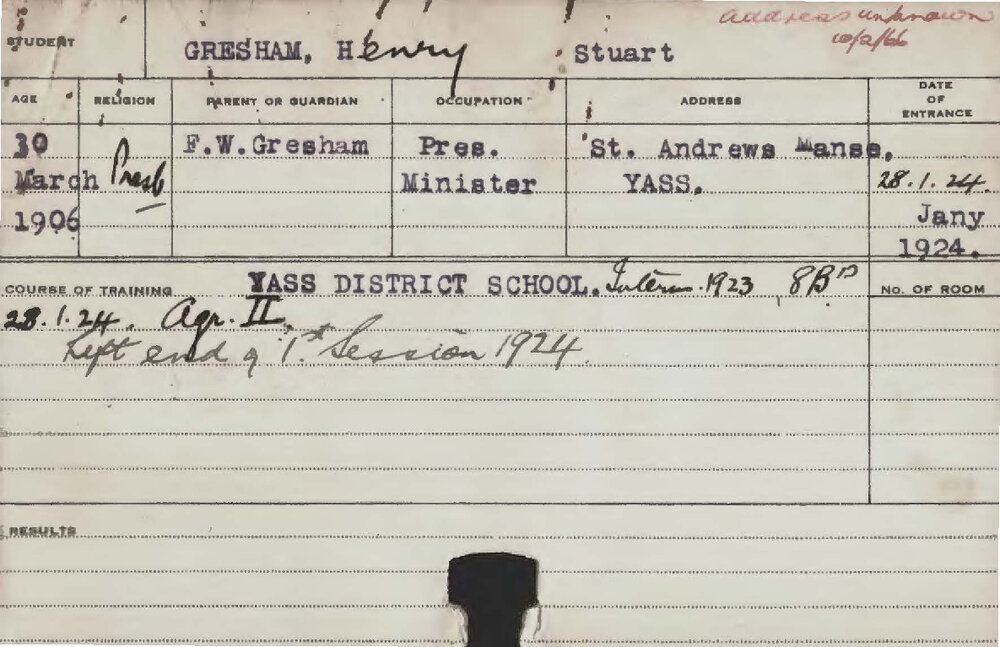 address unknown
10/2/66
STUDENT GRESHAM, Henry Stuart
AGE RELIGION PARENT OR GUARDIAN OCCUPATION ADDRESS DATE OF ENTRANCE
30 F.W.Gresham Pres. St. Andrews Manse,
March Presb Minister YASS. 28.1.24.
1906 Jany
1924.
COURSE OF TRAINING YASS DISTRICT SCHOOL. Interm. 1923 8Bs No. OF ROOM
28.1.24. Agr. II.
Left end of 1st Session 1924.
RESULTS